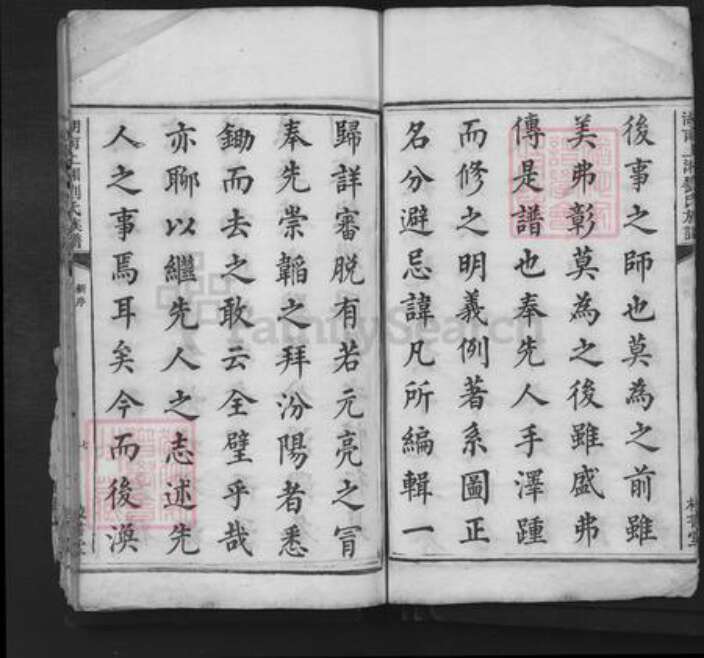 後事之師也莫為之前雖
美弗彰莫為之後雖盛弗
傳是譜也奉先人手澤踵
而修之明義例著系圖正
名分避忌諱凡所編輯一
歸詳審脱有若元亮之冒
奉先崇韜之拜汾陽者悉
鋤而去之敢云全璧乎哉
亦聊以繼先人之志述先
人之事焉耳矣今而後渙
七
FamilySearch